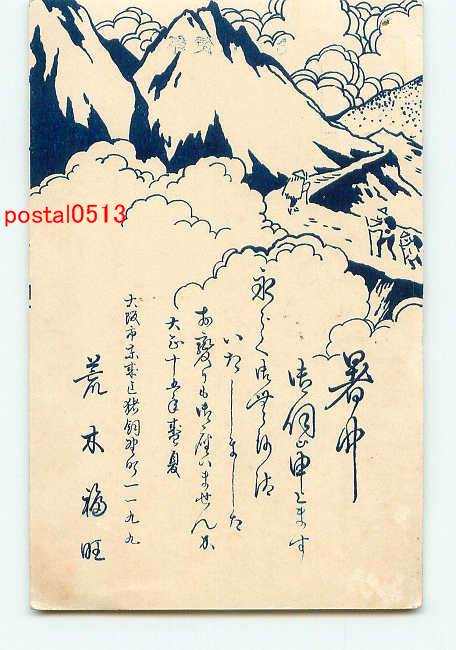 暑中
御伺ひ申上ます
永らく御無沙汰
いたしました
お変りも御座いませんか
大正十五年盛夏
大阪市東成区猪飼野町一一九九
荒木福旺
postal0513